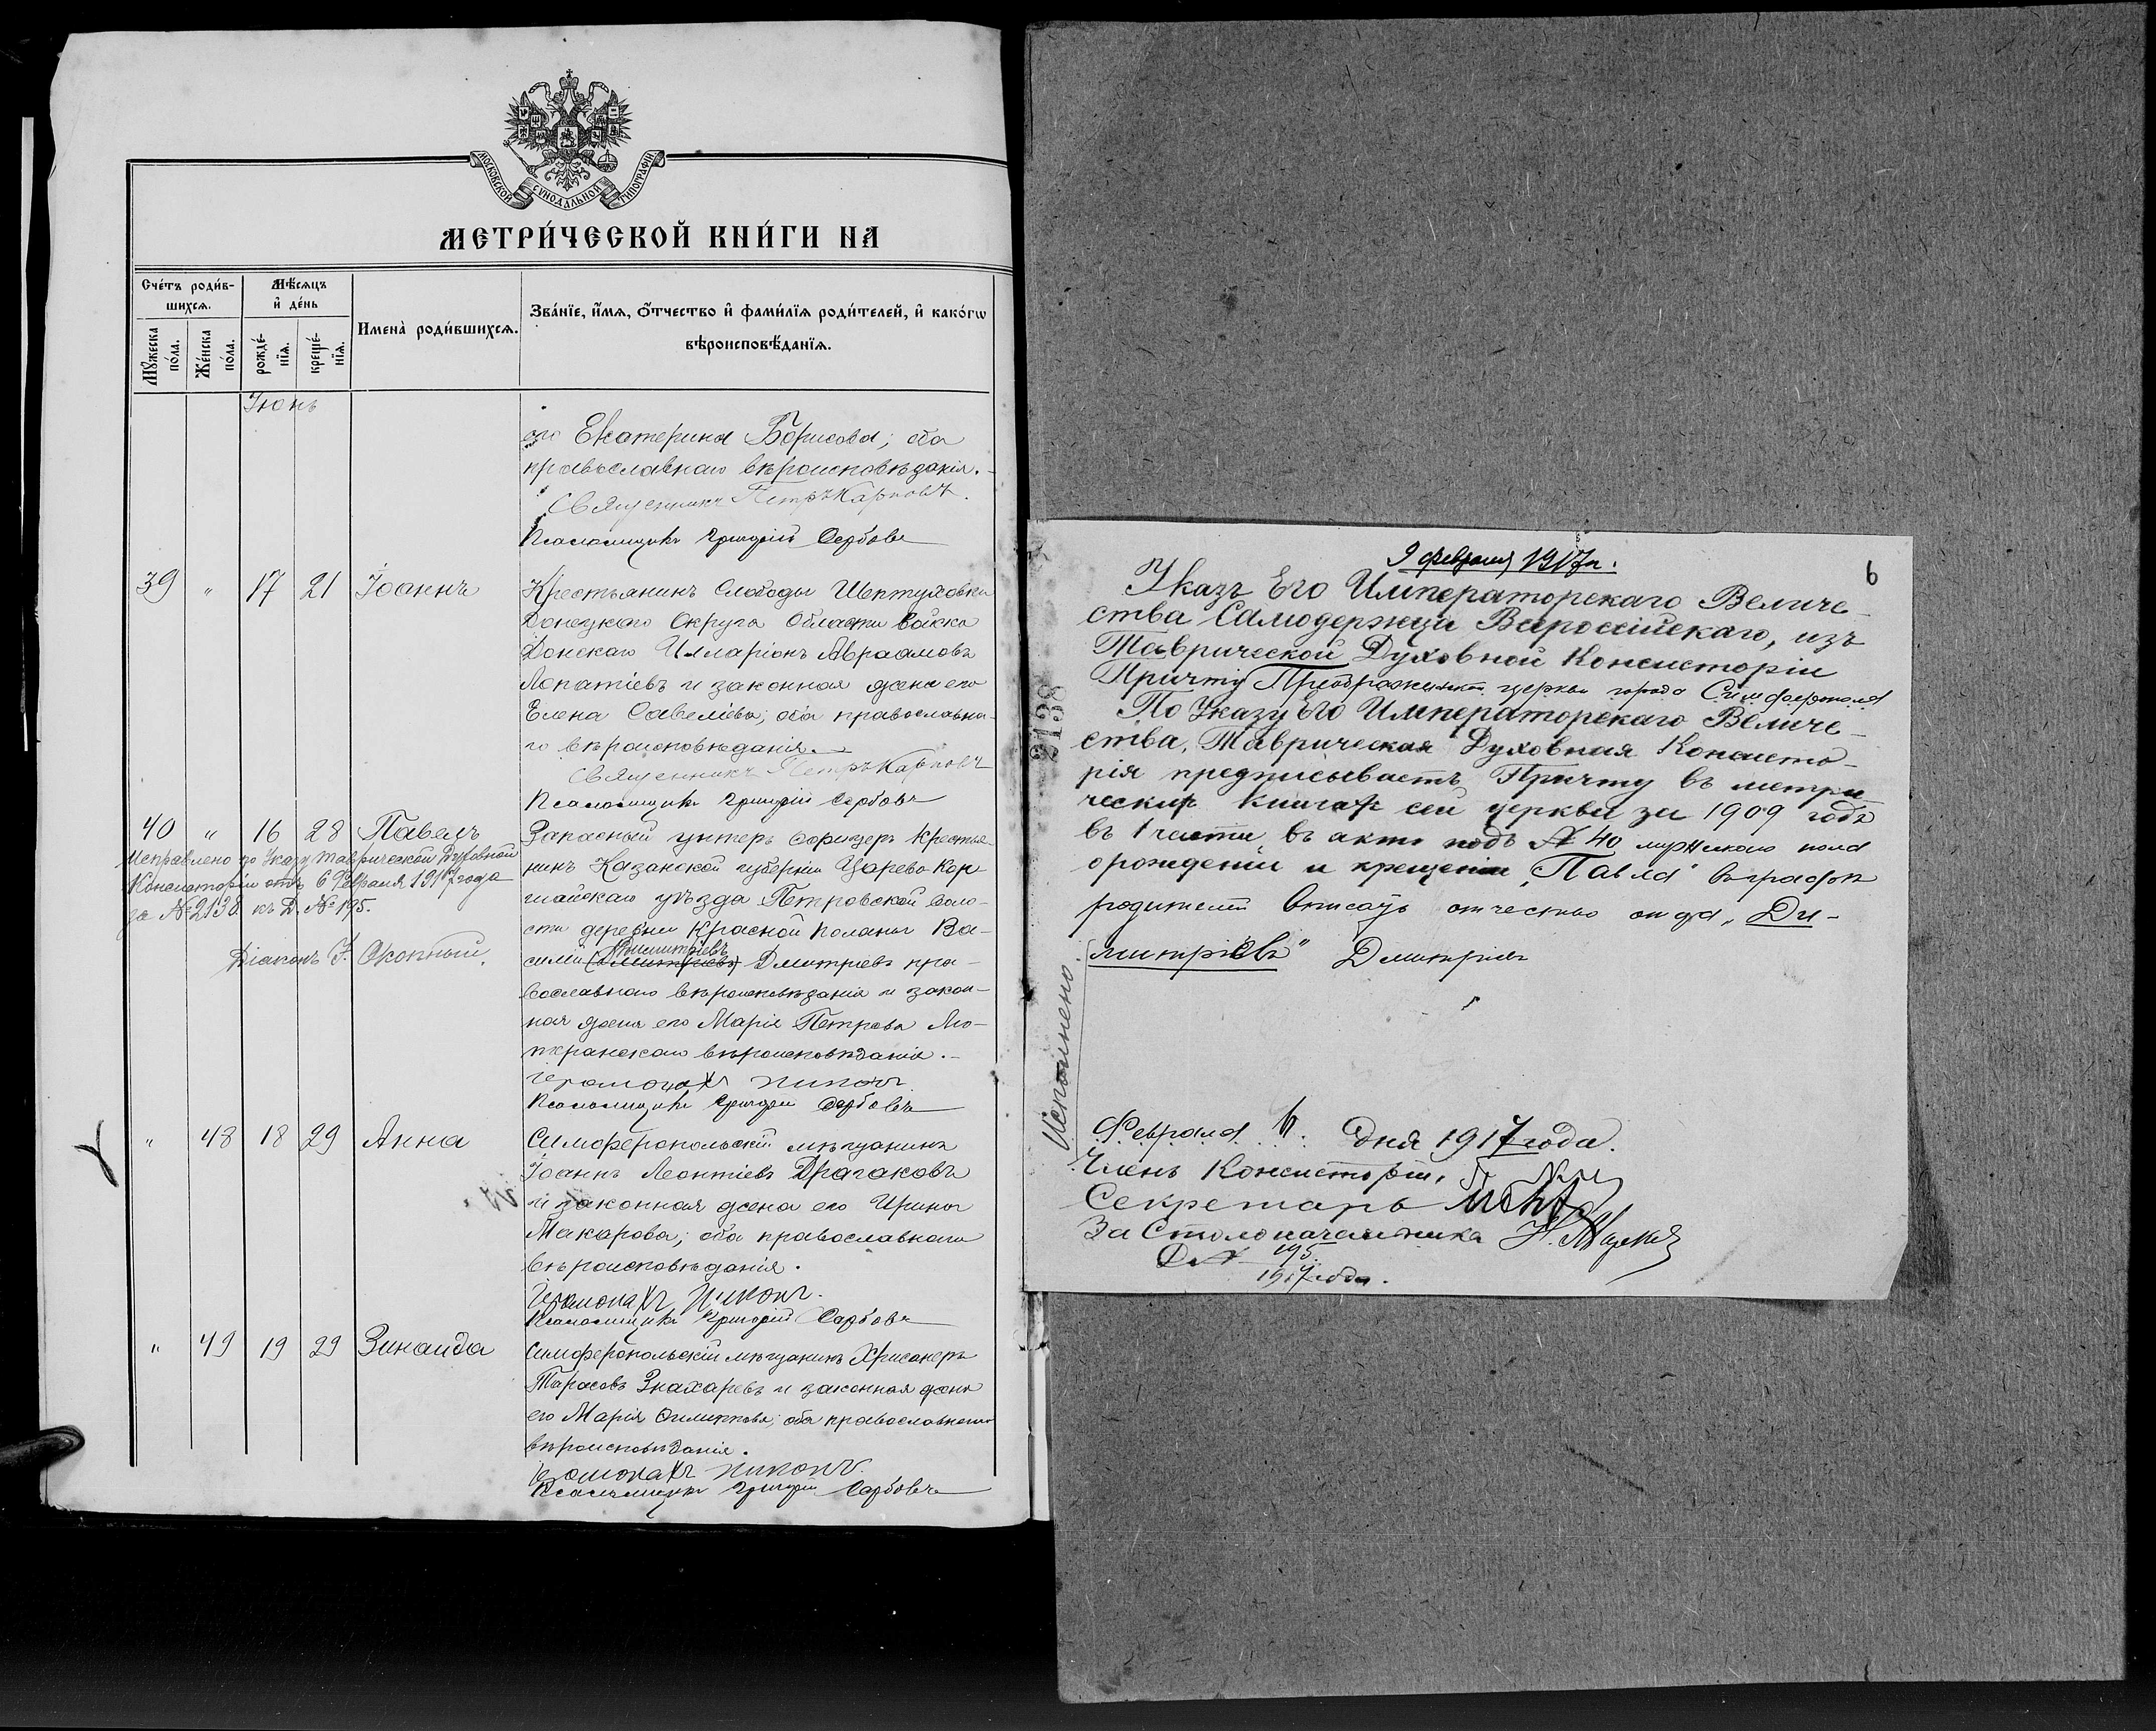 МОСКОВСКОЙ СѴНОДАЛЬНОЙ ТИПОГРАФІИ
МЕТРИ́ЧЕСКОЙ КНИ́ГИ НА
Сче́тъ роди́в-
шихся.
Мѣ́сяцъ
и҆ де́нь
Мꙋ́жеска
по́ла.
Же́нска
по́ла.
рожде́-
нїя.
креще́-
нїя.
Имена̀ роди́вшихся.
Зва́нїе, и҆́мя, ѻ҆́тчество и҆ фами́лїя роди́телей, и҆ како́гѡ
вѣроисповѣ́данїя.
Іюнь
его Екатерина Борисова; оба
православнаго вѣроисповѣданія.
Священникъ Петръ Карповъ.
Псаломщикъ Григорій Сербовъ
39 " 17 21 Іоаннъ
Крестьянинъ Слободы Шептуховки
Донецкаго Округа Области войска
Донскаго Илларіонъ Авраамовъ
Лопатіевъ и законная жена его
Елена Савеліева; оба православна-
го вѣроисповѣданія.
Священникъ Петръ Карповъ
Псаломщикъ Григорій Сербовъ
40 " 16 28 Павелъ
Исправлено по Указу Таврической Духовной
Консисторіи отъ 6 Февраля 1917 года
за № 2138. къ Д. № 195.
Діаконъ Окопный.
Запасный унтеръ офицеръ крестья-
нинъ Казанской губерніи Царево Кок-
шайскаго уѣзда Петровской воло-
сти деревни Красной Поляны Ва-
Димитріевъ
силій (Димитріевъ) Дмитріевъ пра-
вославнаго вѣроисповѣданія и закон-
ная жена его Марія Петрова Лю-
теранскаго вѣроисповѣданія.
Іеромонахъ Никонъ
Псаломщикъ Григорій Сербовъ
" 48 18 29 Анна
Симферопольскій мѣщанинъ
Іоаннъ Леонтіевъ Драгаковъ
и законная жена его Ирина
Макарова; оба православнаго
вѣроисповѣданія.
Іеромонахъ Никонъ.
Псаломщикъ Григорій Сербовъ
" 49 19 29 Зинаида
Симферопольскій мѣщанинъ Хрисанфъ
Тарасовъ Знахаревъ и законная жена
его Марія Филиппова; оба православнаго
вѣроисповѣданія.
Іеромонахъ Никонъ.
Псаломщикъ Григорій Сербовъ
9 февраля 1917 г.
6
Указъ Его Императорскаго Величе-
ства Самодержца Всероссійскаго, изъ
Таврической Духовной Консисторіи
Причту Преображенской церкви города Симферополя
По Указу Его Императорскаго Величе-
ства, Таврическая Духовная Консисто-
рія предписываетъ Причту въ метри-
ческихъ книгахъ сей церкви за 1909 годъ
въ 1 части въ актѣ подъ № 40 мужскаго пола
о рожденіи и крещеніи „Павла" въ графѣ
родителей вписать отчество отца „Ди-
митріевъ" Дмитріевъ
2138
Исполнено
Февраля 6 дня 1917 года.
Членъ Консисторіи,
Секретарь
За Столоначальника
Д. № 195
1917 года.